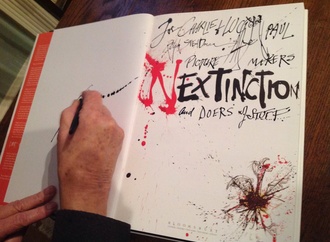 for CHARLIE & LUCY PAUL
PICTURE MAKERS
NEXTINCTION
and DOERS of STUFF.
BLOOMSBURY